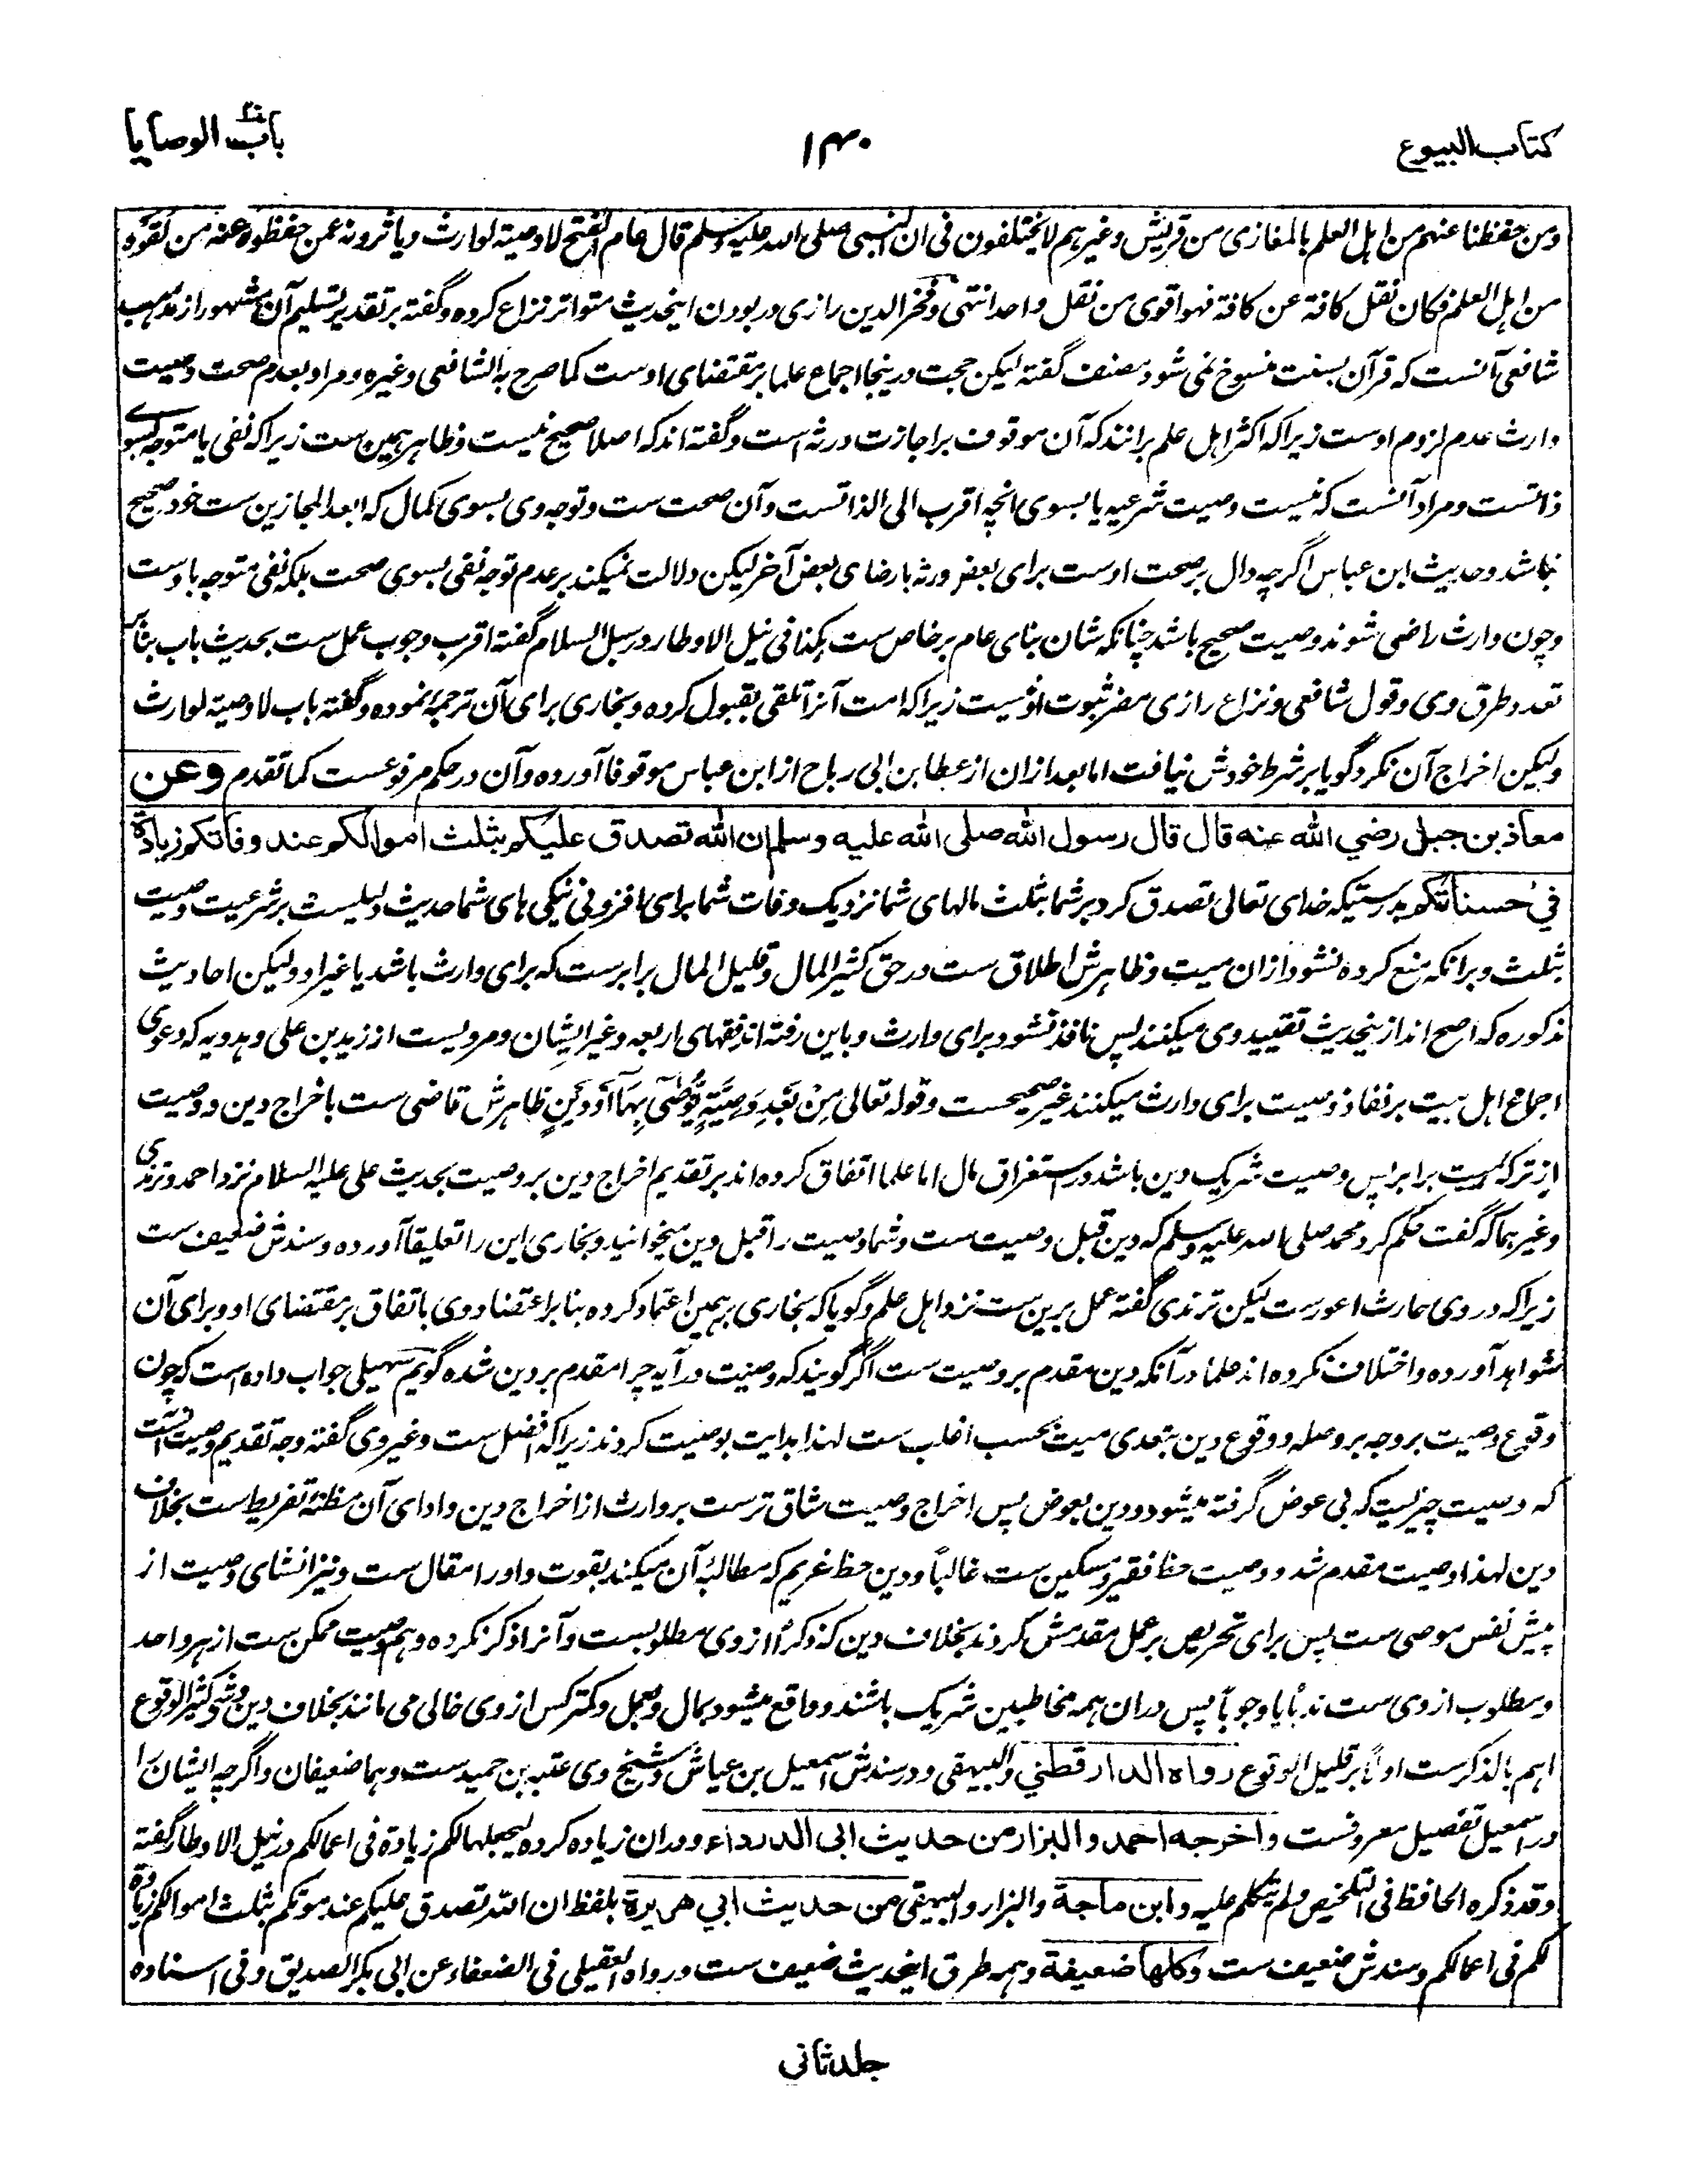 کتاب البیوع
۱۴۰
باب الوصایا
ومن حفظنا عنهم من اہل العلم بالمغازی من قریش وغیرہم لا یختلفون فی ان النبی صلی اللہ علیہ وسلم قال عام الفتح لا وصیۃ لوارث ویاثرونہ عمن حفظوہ عنہ من لقوہ
من اہل العلم فکان نقل کافۃ عن کافۃ فہو اقوی من نقل واحد انتہی وفخر الدین رازی در بودن اینحدیث متواتر نزاع کردہ وگفتہ بر تقدیر تسلیم آن مشہور از مذہب
شافعی آنست کہ قرآن بسنت منسوخ نمی شود مصنف گفتہ لیکن حجت درینجا اجماع علما بر مقتضای اوست کما صرح بہ الشافعی وغیرہ ومراد بعدم صحت وصیت
وارث عدم لزوم اوست زیراکہ اکثر اہل علم برانند کہ آن موقوف بر اجازت ورثہ است وگفتہ اند کہ اصلا صحیح نیست وظاہر ہمین ست زیراکہ نفی یا متوجہ بسوے
ذاتست ومراد آنست کہ نیست وصیت شرعیہ یا بسوی انچہ اقرب الی الذاتست وآن صحت ست وتوجہ وی بسوی کمال کہ ابعد المجازین ست خود صحیح
نباشد وحدیث ابن عباس اگرچہ دال بر صحت اوست برای بعض ورثہ با رضای بعض آخر لیکن دلالت نمیکند بر عدم توجہ نفی بسوی صحت بلکہ نفی متوجہ باوست
وچون وارث راضی شوند وصیت صحیح باشد چنانکہ شان بنای عام بر خاص ست ہکذا فی نیل الاوطار ودر سبل السلام گفتہ اقرب وجوب عمل ست بحدیث باب بنا بر
تعدد طرق وی وقول شافعی ونزاع رازی مضر ثبوت او نیست زیراکہ امت آنرا تلقی بقبول کردہ وبخاری برای آن ترجمہ نمودہ وگفتہ باب لا وصیۃ لوارث
ولیکن اخراج آن نکرد گویا بر شرط خودش نیافت اما بعد ازان از عطا بن ابی رباح از ابن عباس موقوفا آوردہ وآن در حکم مرفوعست کما تقدم وعن
معاذ بن جبل رضي الله عنه قال قال رسول الله صلى الله عليه وسلم ان الله تصدق عليكم بثلث اموالكم عند وفاتكم زيادة
في حسناتكم بدرستیکہ خدای تعالی تصدق کرد بر شما بثلث مالہای شما نزدیک وفات شما برای افزونی نیکی ہای شما حدیث دلیلیست بر شرعیت وصیت
بثلث وبرانکہ منع کردہ نشود ازان میت وظاہرش اطلاق ست در حق کثیر المال وقلیل المال برابرست کہ برای وارث باشد یا غیر او ولیکن احادیث
مذکورہ کہ اصح اند از ینحدیث تقیید وی میکنند پس نافذ نشود برای وارث وباین رفتہ اند فقہای اربعہ وغیر ایشان ومرویست از زید بن علی وہدویہ کہ دعوی
اجماع اہل بیت بر نفاذ وصیت برای وارث میکنند غیر صحیحست وقولہ تعالی مِنْ بَعْدِ وَصِیَّۃٍ یُّوْصٰی بِہَآ اَوْ دَیْنٍ ظاہرش قاضی ست باخراج دین ووصیت
از ترکہ میت برابر پس وصیت شریک دین باشد در استغراق مال اما علما اتفاق کردہ اند بر تقدیم اخراج دین بر وصیت بحدیث علی علیہ السلام نزد احمد وترمذی
وغیرہما کہ گفت حکم کرد محمد صلی اللہ علیہ وسلم کہ دین قبل وصیت ست وشما وصیت را قبل دین میخوانید وبخاری این را تعلیقا آوردہ وسندش ضعیف ست
زیراکہ در وی حارث اعورست لیکن ترمذی گفتہ عمل برین ست نزد اہل علم وگویا کہ بخاری برہمین اعتماد کردہ بنا بر اعتضاد وی باتفاق بر مقتضای او وبرای آن
شواہد آوردہ واختلاف نکردہ اند علما در آنکہ دین مقدم بر وصیت ست اگر گویند کہ وصیت در آیہ چرا مقدم بر دین شدہ گویم سہیلی جواب دادہ است کہ چون
وقوع وصیت بر وجہ بر وصلہ ووقوع دین بتعدی میت بحسب اغلب ست لہذا بدایت بوصیت کردند زیراکہ افضل ست وغیر وی گفتہ وجہ تقدیم وصیت آنست
کہ وصیت چیزیست کہ بی عوض گرفتہ میشود ودین بعوض پس اخراج وصیت شاق ترست بر وارث از اخراج دین وادای آن مظنۂ تفریط ست بخلاف
دین لہذا وصیت مقدم شد ووصیت حظ فقیر ومسکین ست غالباً ودین حظ غریم کہ مطالبۂ آن میکند بقوت واو را مقال ست ونیز انشای وصیت از
پیش نفس موصی ست پس برای تحریص بر عمل مقدمش کردند بخلاف دین کہ ذکر او از وی مطلوبست وآنرا ذکر نکردہ وہم وصیت ممکن ست از ہر واحد
ومطلوب از وی ست ندباً یا وجوباً پس دران ہمہ مخاطبین شریک باشند وواقع میشود بمال وعمل وکمتر کس از وی خالی می مانند بخلاف دین وشی کثیر الوقوع
اہم بالذکرست اولاً بر قلیل الوقوع رواه الدارقطني والبیہقی ودر سندش اسمعیل بن عیاش وشیخ وی عتبہ بن حمید ست وہما ضعیفان واگرچہ ایشان را
در اسمعیل تفصیل معروفست واخرجه احمد والبزار من حديث ابي الدرداء ودران زیادہ کردہ لیجعلہا لکم زیادۃ فی اعمالکم در نیل الاوطار گفتہ
وقد ذکرہ الحافظ فی التلخیص ولم یتکلم علیہ وابن ماجة والبزار والبیہقی من حديث ابي هريرة بلفظ ان اللہ تصدق علیکم عند موتکم بثلث اموالکم زیادۃ
لکم فی اعمالکم وسندش ضعیف ست وكلها ضعيفة وہمہ طرق اینحدیث ضعیف ست ورواہ العقیلی فی الضعفاء عن ابی بکر الصدیق وفی اسنادہ
جلد ثانی